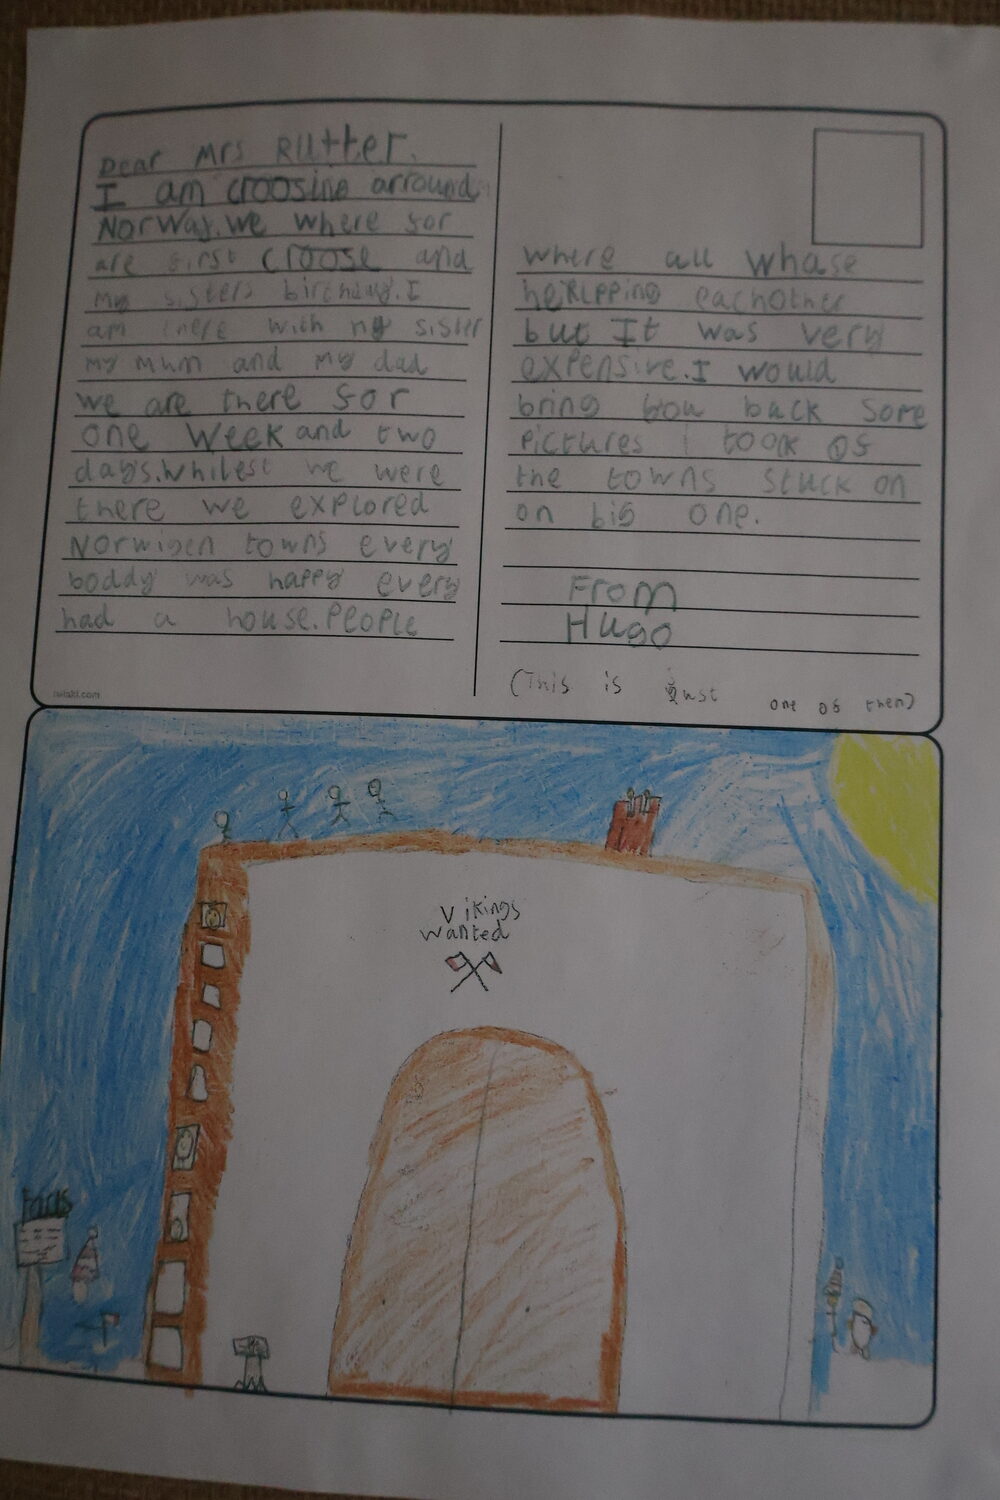 Dear Mrs Rutter.
I am croosing arround
Norway. we where for
are first croose and
my sisters birthday. I
am there with my sister
my mum and my dad
we are there for
one week and two
days. whilest we were
there we explored
Norwigen towns every
boddy was happy every
had a house. People
twinkl.com
where all whase
helpping eachother
but It was very
expensive. I would
bring you back some
pictures I took of
the towns stuck on
on big one.
From
Hugo
(This is just one of then)
Vikings
wanted
Facts